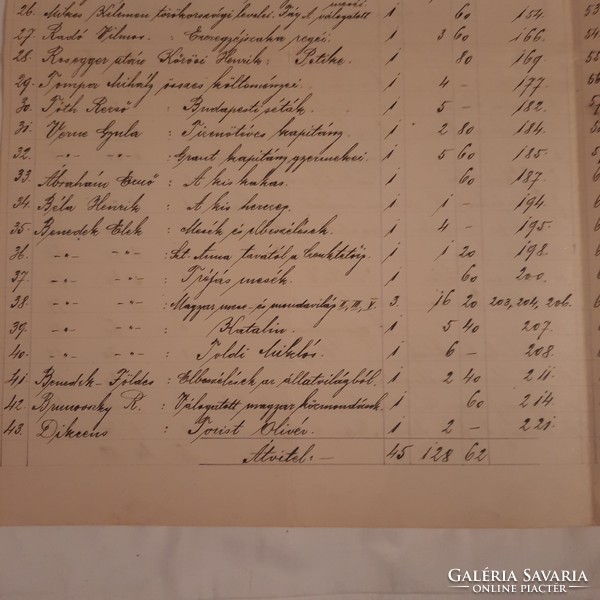 26. Mikes Kelemen törökországi levelei. Tár. A válogatott 1 60 154.
27. Radó Vilmos. : Ezeregyéjszaka regéi. 1 3 60 166.
28. Rosegger után Kőrösi Henrik: Petike. 1 80 169.
29. Tompa Mihály összes költeményei. 1 4 - 177.
30. Tóth Rezső : Budapesti séták. 1 5 - 182.
31. Verne Gyula : Tizenötéves kapitány. 1 2 80 184.
32. -"- -"- : Grant kapitány gyermekei. 1 5 60 185.
33. Ábrahám Ernő : A kis kakas. 1 60 187.
34. Béla Henrik : A kis herceg. 1 1 - 194.
35. Benedek Elek : Mesék és elbeszélések. 1 4 - 195.
36. -"- -"- : Szt. Anna tavától a 1 1 20 198.
37. -"- -"- : Tréfás mesék. 1 60 200.
38. -"- -"- : Magyar mese- és mondavilág II, III, V. 3. 16 20 203, 204, 206.
39. -"- -"- : Katalin. 1 5 40 207.
40. -"- -"- : Toldi Miklós. 1 6 - 208.
41. Benedek-Földes : Elbeszélések az állatvilágból. 1 2 40 211.
42. R. : Válogatott magyar közmondások. 1 60 214.
43. Dikcens : Tvist Olivér. 1 2 - 221.
Átvitel: - 45 128 62
GALÉRIA SAVARIA
ONLINE PIACTÉR